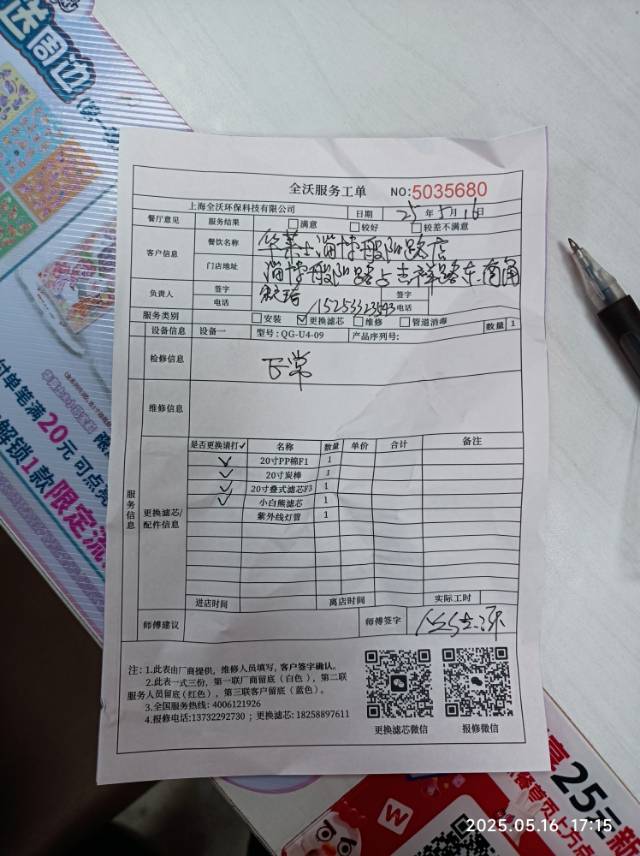 送周边
付单笔满20元可点亮
解锁1款限定流
全沃服务工单 NO:5035680
上海全沃环保科技有限公司 日期 25年5月16日
餐厅意见 服务结果 满意 较好 较差不满意
客户信息 餐饮名称 华莱士淄博般山路店
门店地址 淄博般山路与吉祥路东南角
负责人 签字 签字
电话 15253323593 电话
服务类别 安装 ✓更换滤芯 维修 管道消毒 数量 1
设备信息 设备一 型号: QG-U4-09 产品序列号:
检修信息 正常
维修信息
服务信息
更换滤芯/配件信息
是否更换请打✓ 名称 数量 单价 合计 备注
✓ 20寸PP棉F1 1
✓ 20寸炭棒 1
✓ 20寸叠式滤芯F3 1
✓ 小白熊滤芯 1
紫外线灯管 1
进店时间 离店时间 实际工时
师傅建议 师傅签字
注: 1.此表由厂商提供, 维修人员填写, 客户签字确认。
2.此表一式三份, 第一联厂商留底 (白色), 第二联
服务人员留底(红色), 第三联客户留底 (蓝色)。
3.全国服务热线: 4006121926
4.报修电话:13732292730 ; 更换滤芯: 18258897611
更换滤芯微信 报修微信
25元
W
2025.05.16 17:15